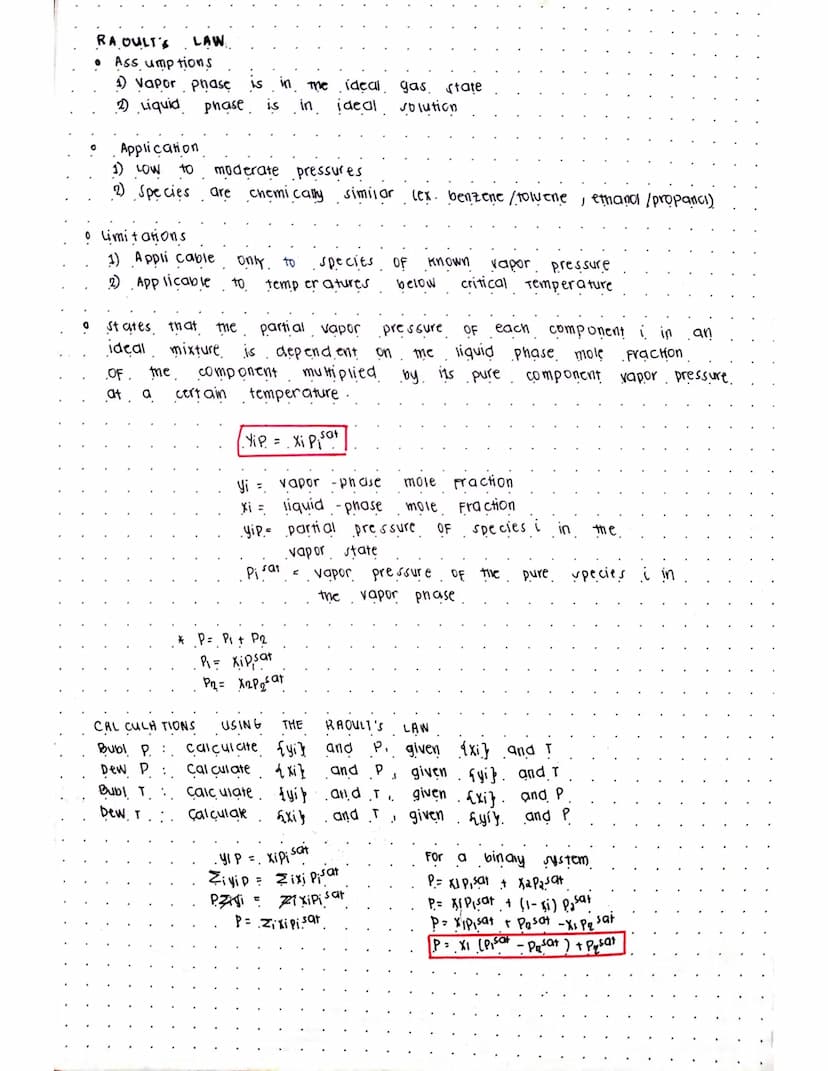 RAOULT's LAW
• Assumptions
1) Vapor phase is in the ideal gas state
2) Liquid phase is in ideal solution
• Application
1) Low to moderate pressures
2) Species are chemically similar (ex. benzene/toluene, ethanol/propanol)
• Limitations
1) Applicable only to species of known vapor pressure
2) Applicable to temperatures below critical temperature
• States that the partial vapor pressure of each component i in an
ideal mixture is dependent on the liquid phase mole fraction
of the component multiplied by its pure component vapor pressure
at a certain temperature.
yiP = xiPi^sat
yi = vapor-phase mole fraction
xi = liquid-phase mole fraction
yiP = partial pressure of species i in the
vapor state
Pi^sat = vapor pressure of the pure species i in
the vapor phase
* P = P1 + P2
P1 = xiP1^sat
P2 = x2P2^sat
CALCULATIONS USING THE RAOULT's LAW
Bubl P : Calculate {yi} and P, given {xi} and T
Dew P : Calculate {xi} and P, given {yi} and T
Bubl T : Calculate {yi} and T, given {xi} and P
Dew T : Calculate {xi} and T, given {yi} and P
yiP = xiPi^sat
ΣiyiP = ΣixiPi^sat
PΣyi = ΣixiPi^sat
P = ΣixiPi^sat
For a binary system
P = x1P1^sat + x2P2^sat
P = x1P1^sat + (1-x1)P2^sat
P = x1P1^sat + P2^sat - x1P2^sat
P = x1(P1^sat - P2^sat) + P2^sat